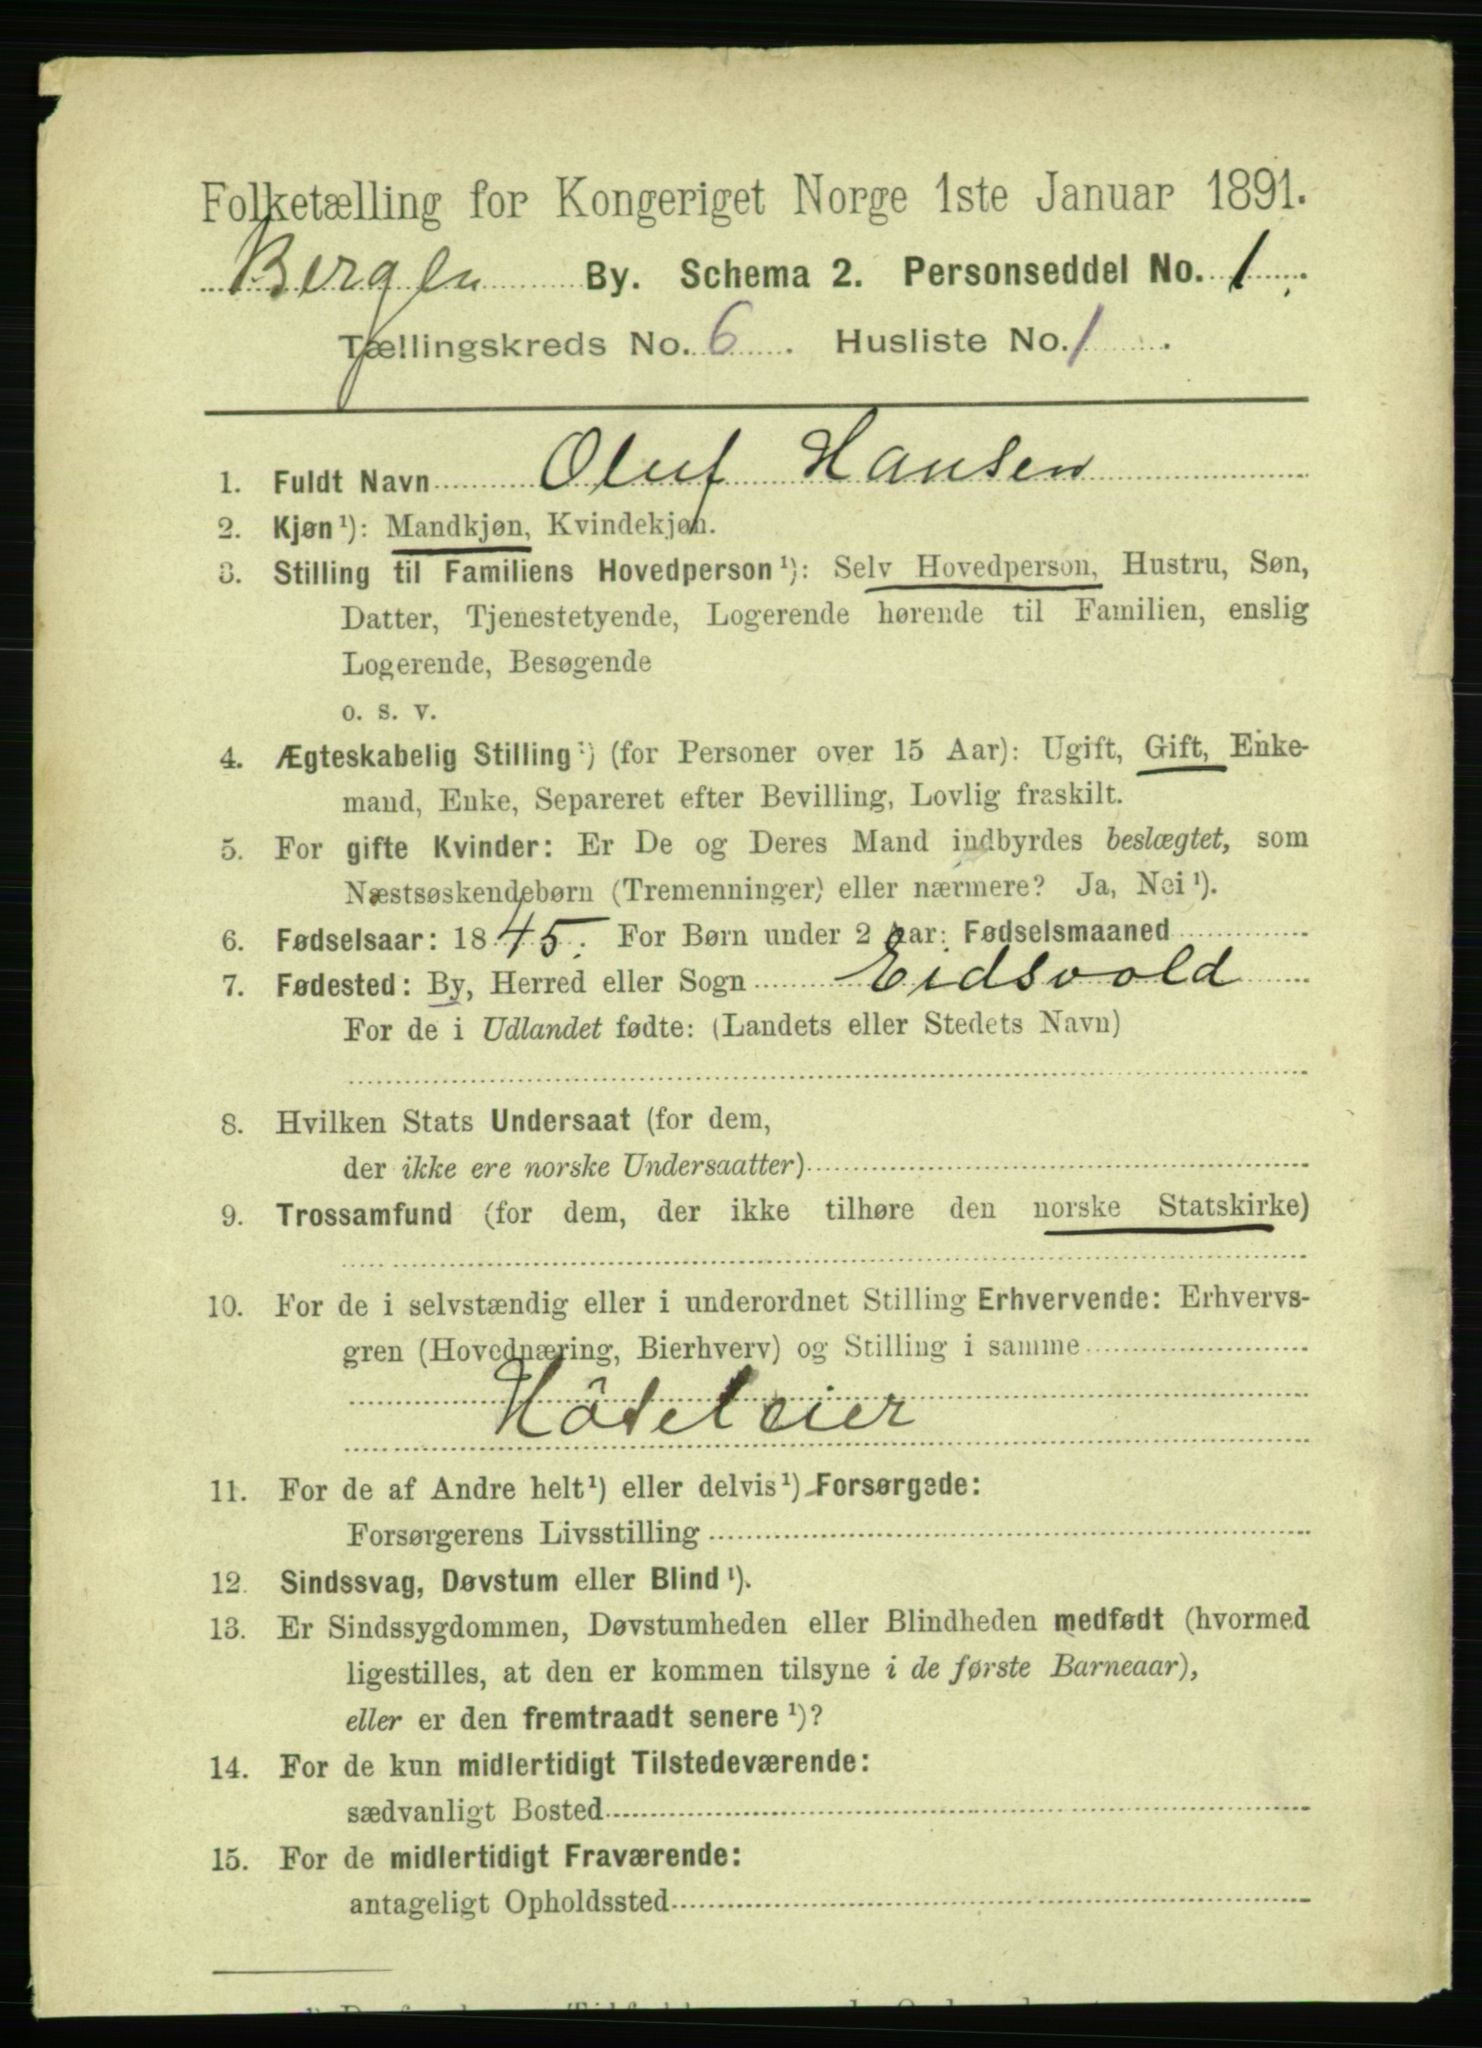 Folketælling for Kongeriget Norge 1ste Januar 1891.
Bergen By. Schema 2. Personseddel No. 1.
Tællingskreds No. 6. Husliste No. 1.
1. Fuldt Navn Oluf Hansen
2. Kjøn ¹): Mandkjøn, Kvindekjøn.
3. Stilling til Familiens Hovedperson ¹): Selv Hovedperson, Hustru, Søn,
Datter, Tjenestetyende, Logerende hørende til Familien, enslig
Logerende, Besøgende
o. s. v.
4. Ægteskabelig Stilling ¹) (for Personer over 15 Aar): Ugift, Gift, Enke-
mand, Enke, Separeret efter Bevilling, Lovlig fraskilt.
5. For gifte Kvinder: Er De og Deres Mand indbyrdes beslægtet, som
Næstsøskendebørn (Tremenninger) eller nærmere? Ja, Nei ¹).
6. Fødselsaar: 1845. For Børn under 2 Aar: Fødselsmaaned
7. Fødested: By, Herred eller Sogn Eidsvold
For de i Udlandet fødte: (Landets eller Stedets Navn)
8. Hvilken Stats Undersaat (for dem,
der ikke ere norske Undersaatter)
9. Trossamfund (for dem, der ikke tilhøre den norske Statskirke)
10. For de i selvstændig eller i underordnet Stilling Erhvervende: Erhvervs-
gren (Hovednæring, Bierhverv) og Stilling i samme
Hôteleier
11. For de af Andre helt ¹) eller delvis ¹) Forsørgede:
Forsørgerens Livsstilling
12. Sindssvag, Døvstum eller Blind ¹).
13. Er Sindssygdommen, Døvstumheden eller Blindheden medfødt (hvormed
ligestilles, at den er kommen tilsyne i de første Barneaar),
eller er den fremtraadt senere ¹)?
14. For de kun midlertidigt Tilstedeværende:
sædvanligt Bosted
15. For de midlertidigt Fraværende:
antageligt Opholdssted